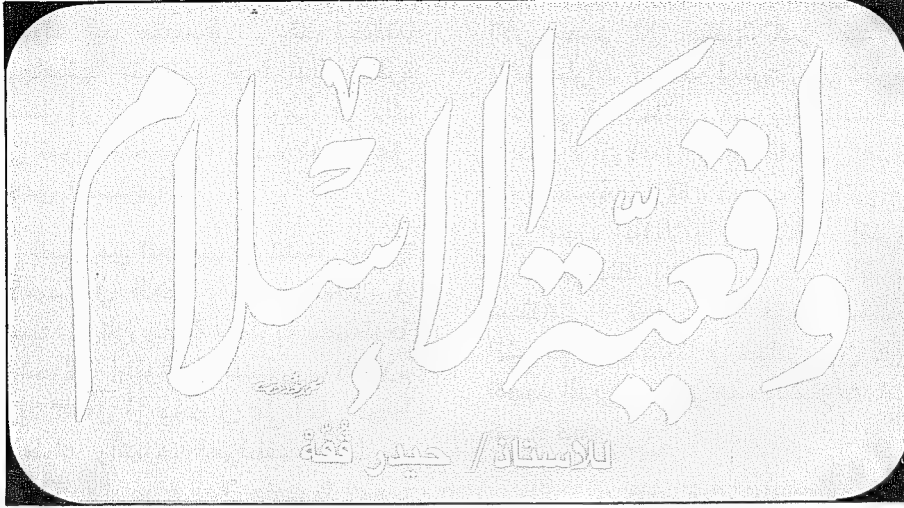 واقعية الاسلام
للاستاذ / حيدر قفة